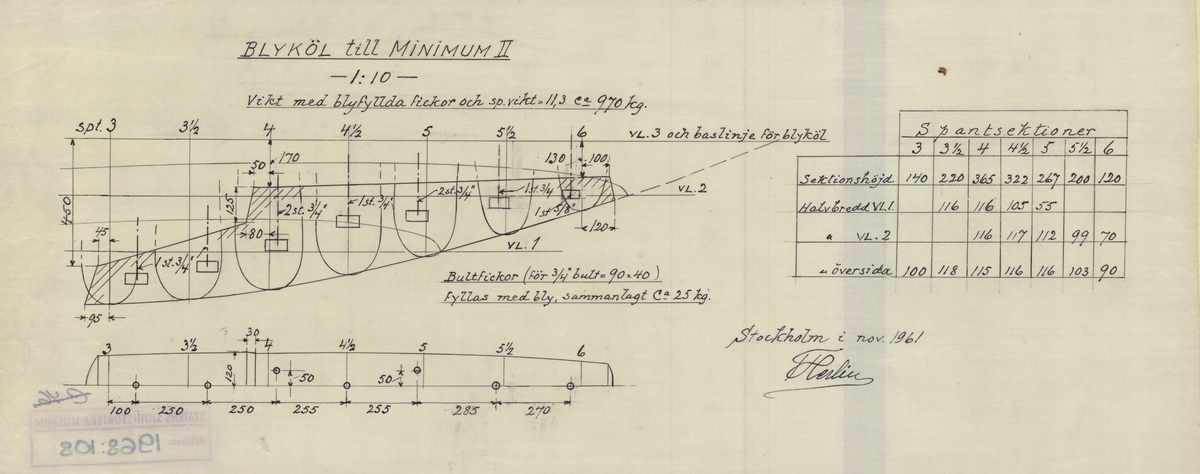 BLYKÖL till MINIMUM II
—1:10—
Vikt med blyfyllda fickor och sp.vikt=11,3 Ca 970 kg.
spt. 3 3½ 4 4½ 5 5½ 6
VL.3 och baslinje för blyköl
50 170 130 100
450 125 2st.¾" 1st.¾" 2st.¾" 1st.¾ 1st ⅝" VL.2
45 80 120
1st.¾" VL.1
95
Bultfickor (för ¾" bult=90×40)
fyllas med bly, sammanlagt Ca 25 kg.
3 3½ 30 4 4½ 5 5½ 6
120 50 50
100 230 250 255 255 285 270
Spantsektioner
3 3½ 4 4½ 5 5½ 6
Sektionshöjd 140 220 365 322 267 200 120
Halvbredd VL.1. 116 116 105 55
" VL.2 116 117 112 99 70
" översida 100 118 115 116 116 103 90
Stockholm i nov. 1961
STATENS SJÖHISTORISKA MUSEUM
1968:108